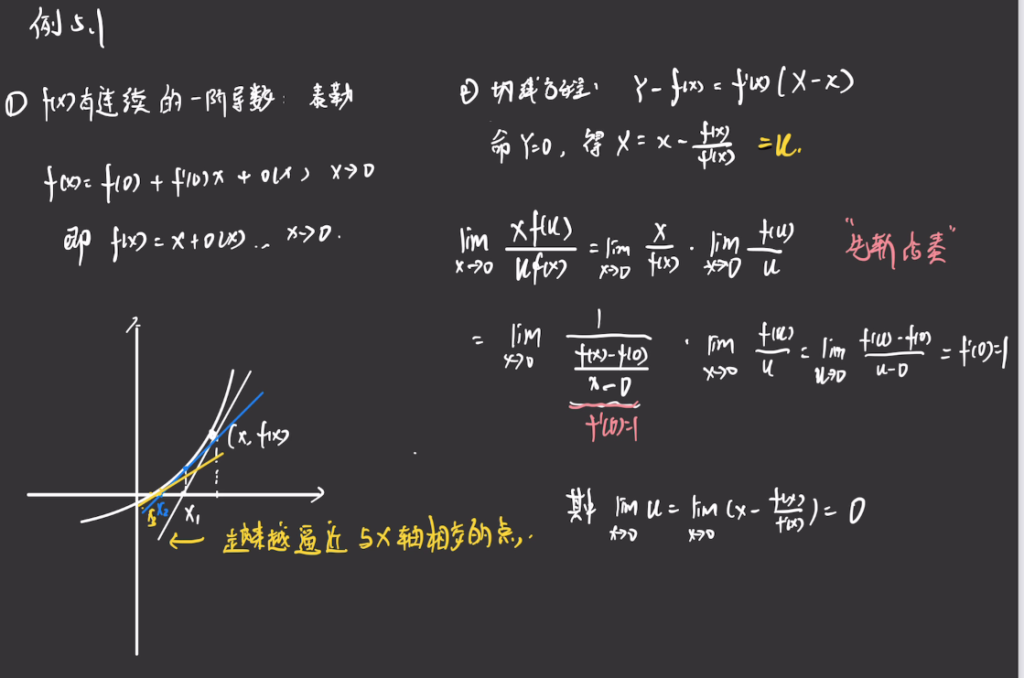 例5.1
① f(x)有连续的一阶导数：泰勒
f(x)=f(0)+f'(0)x+o(x), x→0
即 f(x)=x+o(x).. x→0.
y
(x, f(x))
x₃ x₂ x₁
← 越来越逼近与X轴相交的点,.
② 切线方程: Y-f(x)=f'(x)(X-x)
命Y=0, 得X=x-f(x)/f'(x) =u.
lim x→0 xf(u)/uf(x) = lim x→0 x/f(x) · lim x→0 f(u)/u
= lim x→0 1/((f(x)-f(0))/(x-0)) · lim x→0 f(u)/u = lim u→0 (f(u)-f(0))/(u-0) = f'(0)=1
f'(0)=1
其中 lim x→0 u = lim x→0 (x-f(x)/f'(x)) = 0